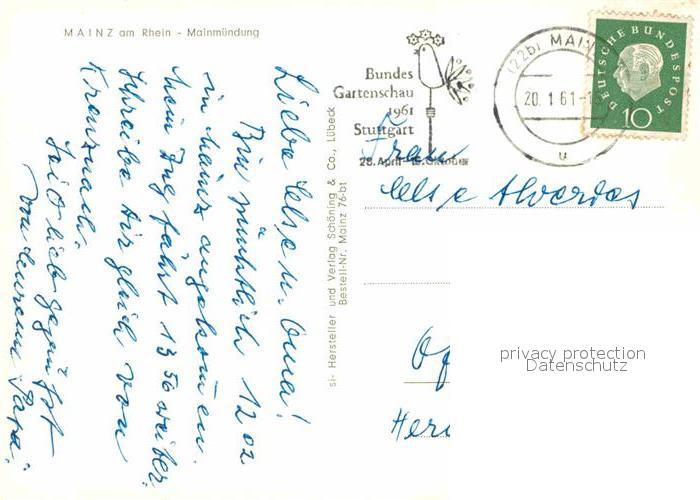 MAINZ am Rhein - Mainmündung
Liebe Else u. Oma!
Bin pünktlich 12 02
in Mainz angekommen.
Mein Zug fährt 13 56 weiter.
Schreibe Dir gleich von
Kreuznach.
Seid lieb gegrüßt
von eurem Papa.
si- Hersteller und Verlag Schöning & Co., Lübeck
Bestell-Nr. Mainz 76-bt
Bundes
Gartenschau
1961
Stuttgart
28. April - Oktober
(22b) MAINZ
20. 1. 61-1
u
DEUTSCHE BUNDESPOST
10
Frau
Else Alverdes
privacy protection
Datenschutz